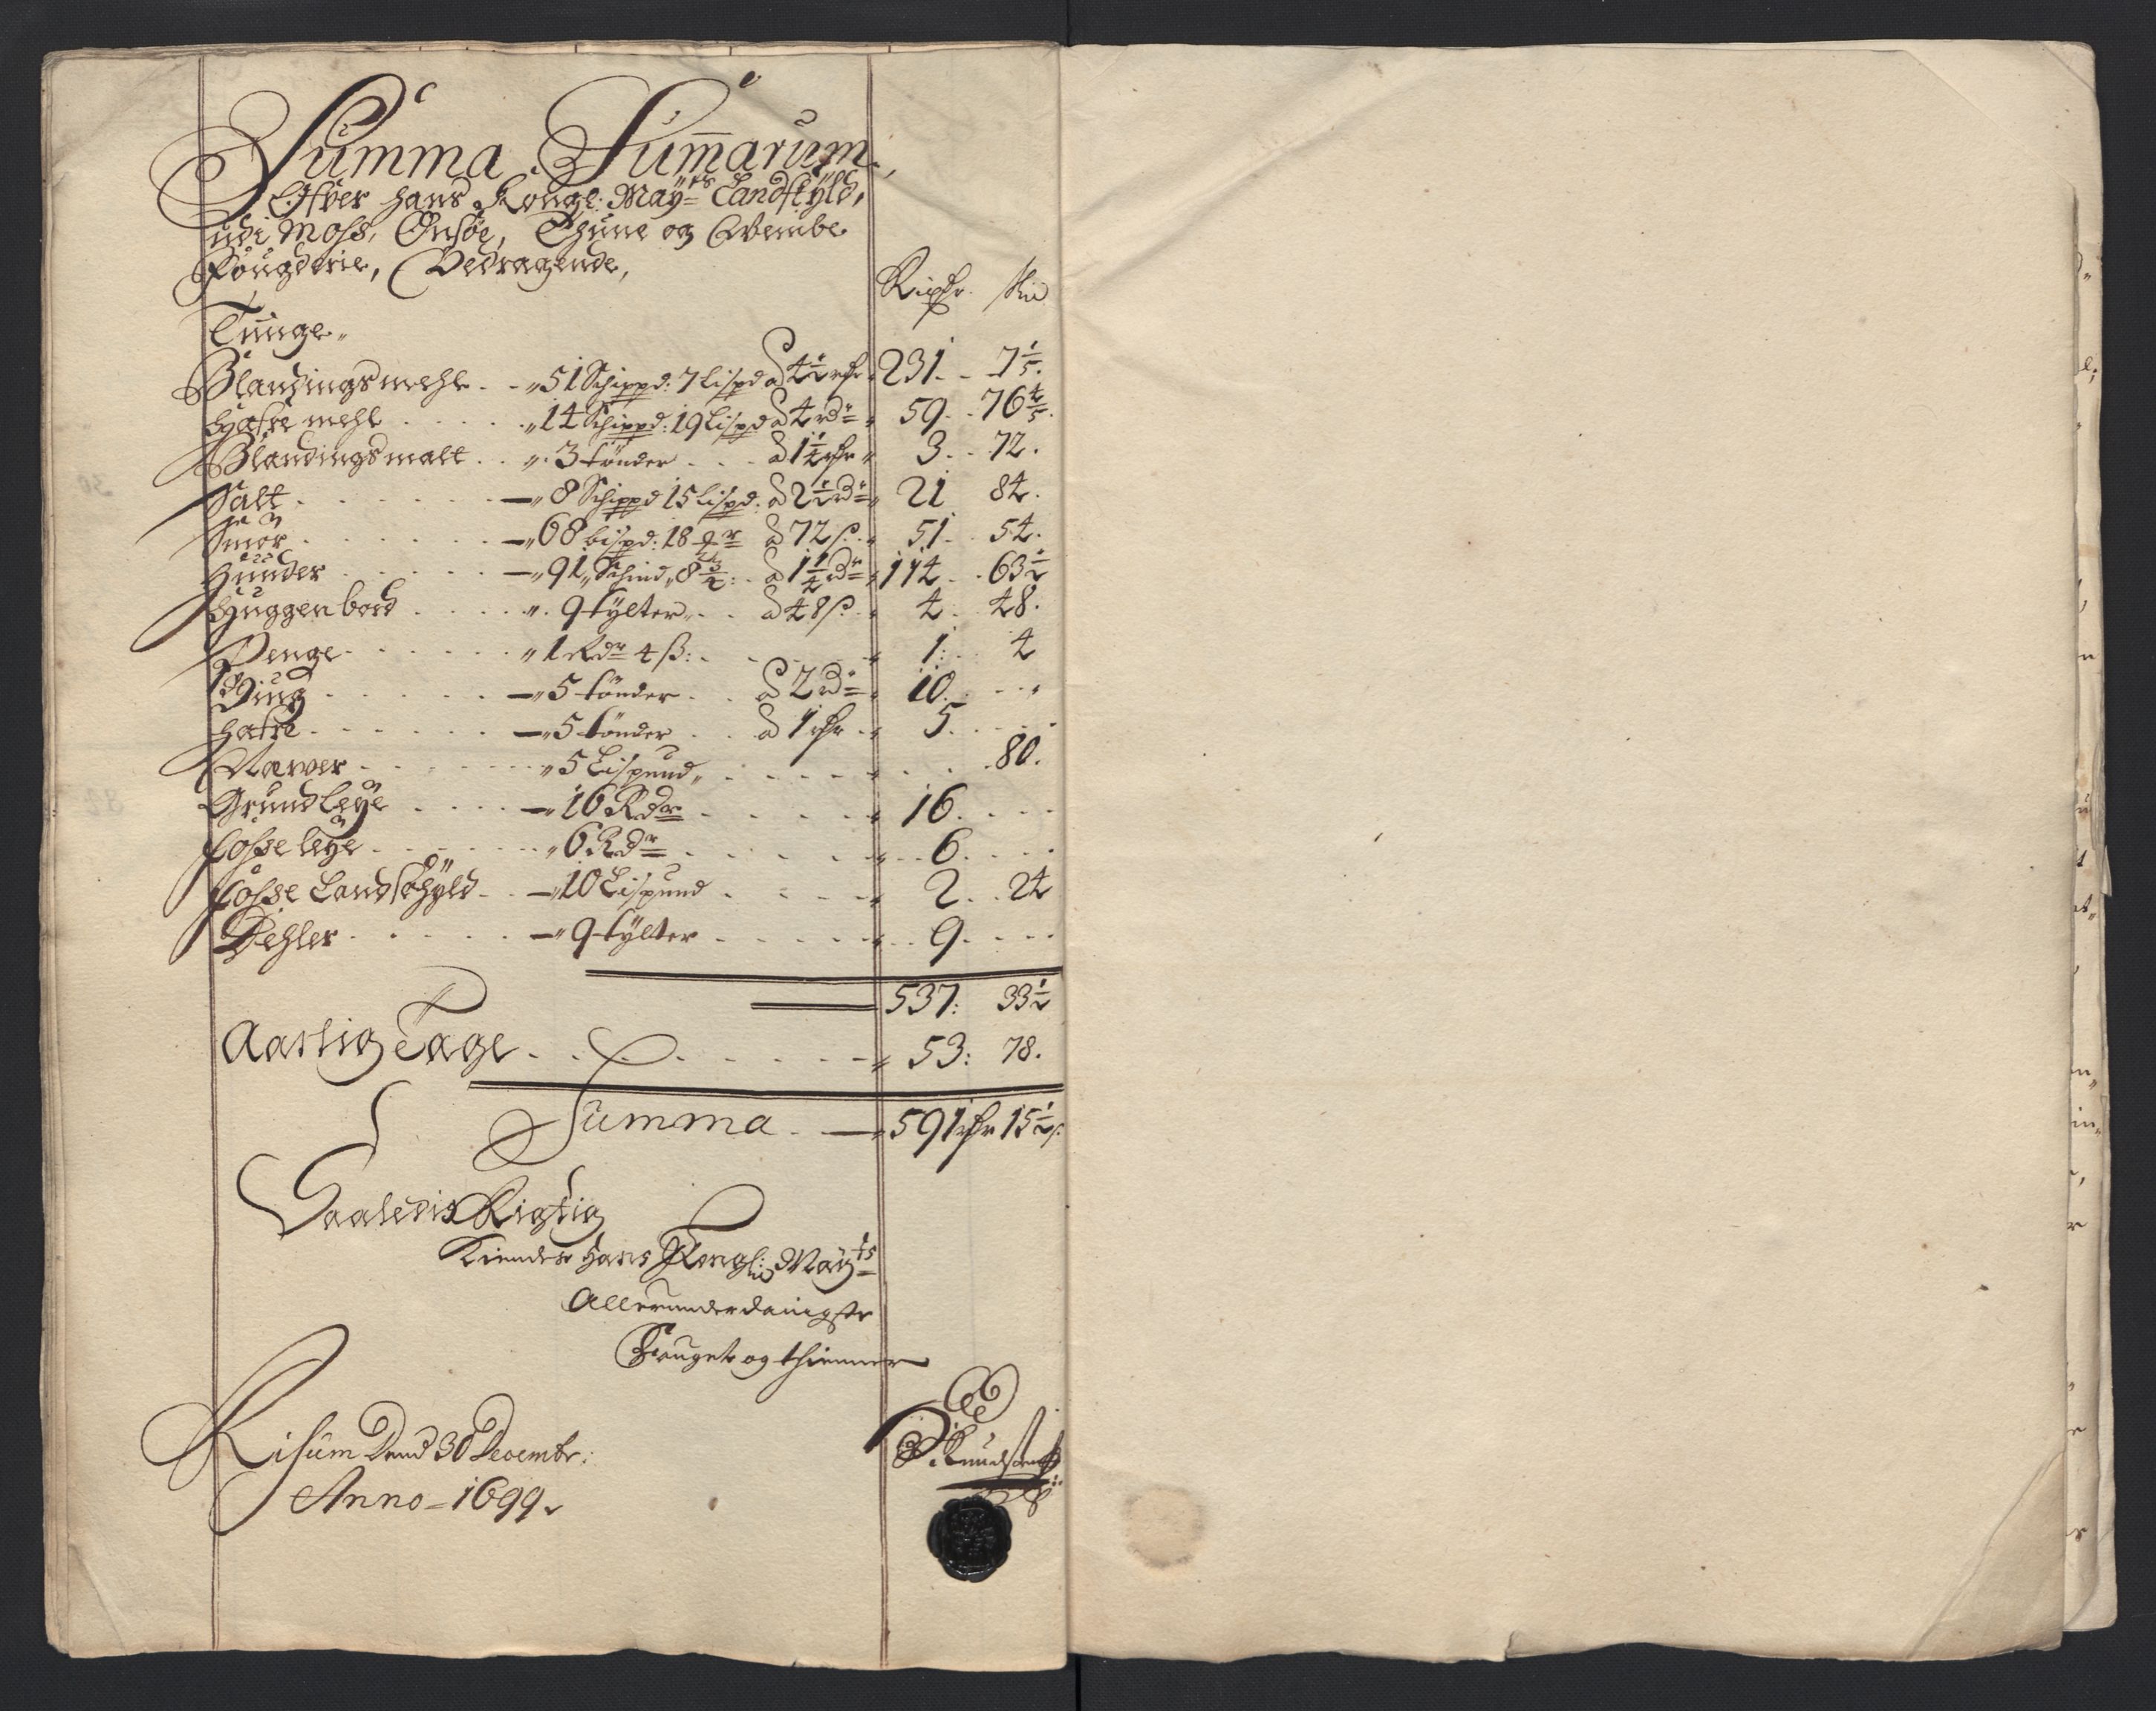 Summa Sumarum
Ofver hans Kongl: Mayts Landskyld,
udi Moss, Onsøe, Thune og Webne
Fougderie, Bedragende,
Rixdr. Skil
Tunge
Blandingsmehl - - 51 Schippd: 7 Lispd a 4½ rdr 231 - 7 1/5.
Hafre mehl . . . . 14 Schippd: 19 Lispd a 4 rdr 59 - 76 4/5.
Blandingsmalt . . 3 tønder . . . a 1¼ rdr 3 - 72.
Salt . . . . - 8 Schippd 15 Lispd: a 2½ rdr 21 84.
Smør . . . . - 68 bispd: 18 mr a 72 s. 51 - 54.
Huuder . . . . - 91 Schind 8¾ . a 1¼ rdr 114 - 63½
Huggenbord . . . . 9 tylter . . a 48 s. 4 - 48.
Penge . . . . 1 Rdr 4 ß: . . 1: . 4
Biug . . . . - 5 tønder . . a 2 rdr 10. . . .
Hafre . . . . - 5 tønder . . a 1 rdr . 5. . . .
Næwer . . . . 5 Lispund . . . . 80.
Grundleye . . . . - 16 Rdr . . . . 16. . . .
Fosse leye . . . . 6 Rdr . . . . 6. . . .
Fosse Landschyld . . - 10 Lispund . . . . 2. . 24
Dehler . . . . - 9 tylter . . . . 9. . . .
537: 33½
Aarlig Tage . . . . 53: 78.
Summa - 591 rdr 15½ s.
Saaledis Rigtig
Kiender Hans Kongl: Mayts
Allerunderdanigste
Fouget og thienner
Risum Dend 30 Decembr:
Anno - 1699.